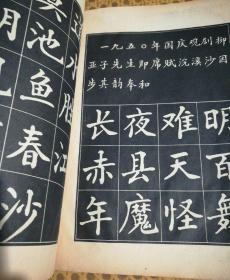 莫道
明池水
观鱼胜
春江
沙
一九五〇年国庆观剧柳
亚子先生即席赋浣溪沙因
步其韵奉和
长夜难明
赤县天百
年魔怪舞